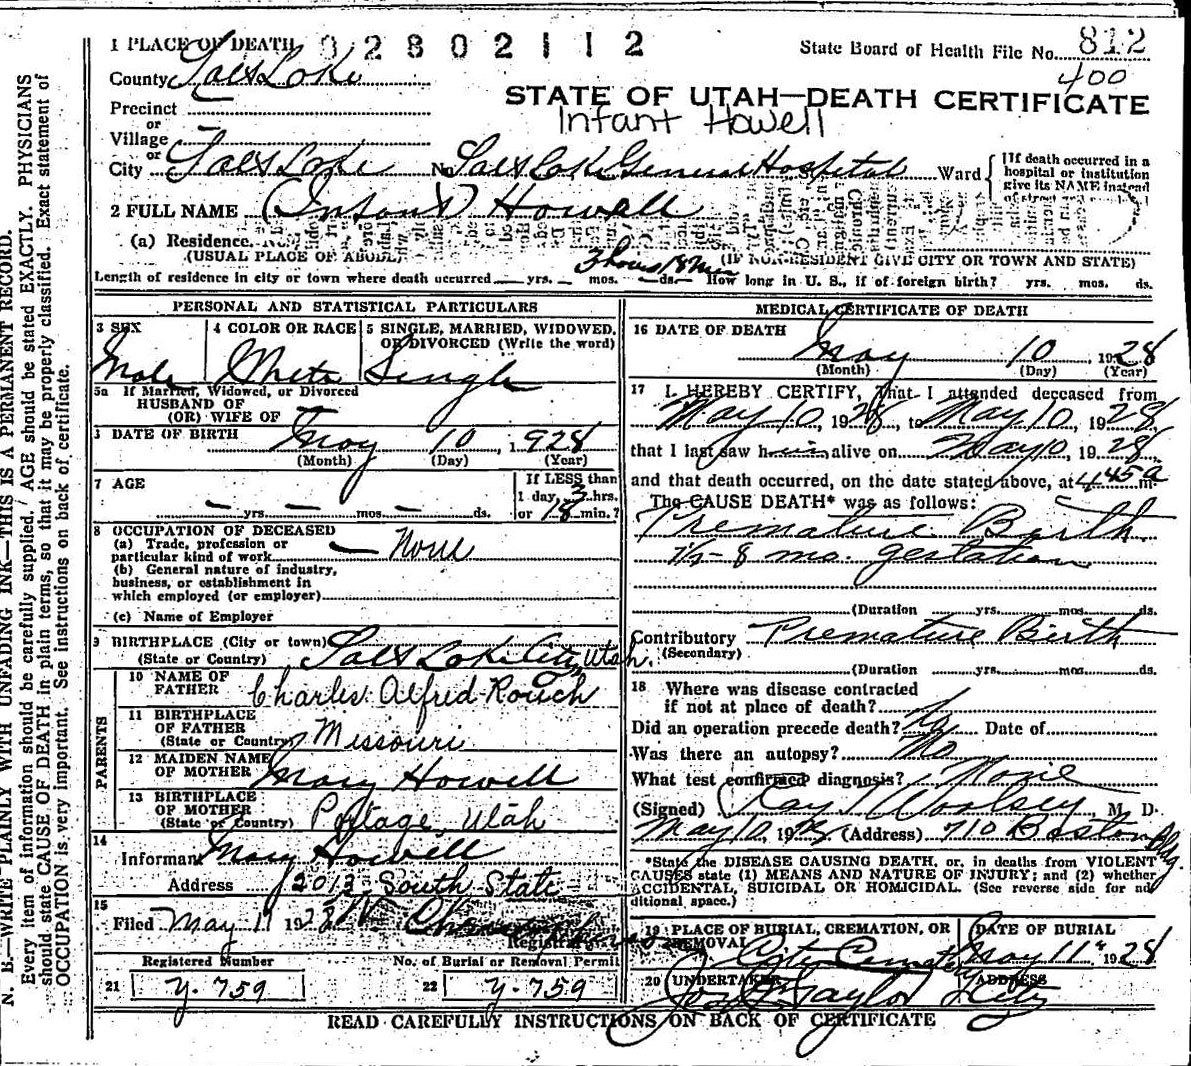 1 PLACE OF DEATH 02802112 State Board of Health File No. 812
400
County Salt Lake
STATE OF UTAH—DEATH CERTIFICATE
Precinct
Infant Howell
or
Village
or
City Salt Lake No. Salt Lake General Hospital Ward
(If death occurred in a
hospital or institution
give its NAME instead
of street and
2 FULL NAME (Infant) Howell
(a) Residence.
(USUAL PLACE OF ABODE) (IF NON-RESIDENT GIVE CITY OR TOWN AND STATE)
3 hours 18 Min
Length of residence in city or town where death occurred yrs. mos. ds. How long in U. S., if of foreign birth? yrs. mos. ds.
PERSONAL AND STATISTICAL PARTICULARS
3 SEX
Male
4 COLOR OR RACE
White
5 SINGLE, MARRIED, WIDOWED,
OR DIVORCED (Write the word)
Single
5a If Married, Widowed, or Divorced
HUSBAND OF
(OR) WIFE OF
DATE OF BIRTH May 10, 1928
(Month) (Day) (Year)
7 AGE
— yrs. — mos. — ds.
If LESS than
1 day, 3 hrs.
or 18 min.?
8 OCCUPATION OF DECEASED
(a) Trade, profession or
particular kind of work — None
(b) General nature of industry,
business, or establishment in
which employed (or employer)
(c) Name of Employer
9 BIRTHPLACE (City or town) Salt Lake City, Utah.
(State or Country)
PARENTS
10 NAME OF
FATHER Charles Alfred Rouch
11 BIRTHPLACE
OF FATHER
(State or Country) Missouri
12 MAIDEN NAME
OF MOTHER Mary Howell
13 BIRTHPLACE
OF MOTHER
(State or Country) Portage, Utah
14
Informant Mary Howell
Address 2013 South State
15
Filed May 11 1928
Registrar
Registered Number No. of Burial or Removal Permit
21 Y-759 22 Y-759
MEDICAL CERTIFICATE OF DEATH
16 DATE OF DEATH
May 10, 1928
(Month) (Day) (Year)
17 I HEREBY CERTIFY, That I attended deceased from
May 10, 1928, to May 10, 1928
that I last saw him alive on May 10, 1928
and that death occurred, on the date stated above, at 4 45 a m.
The CAUSE DEATH* was as follows:
Premature Birth
7½-8 mo. gestation
(Duration yrs. mos. ds.
Contributory Premature Birth
(Secondary)
(Duration yrs. mos. ds.
18 Where was disease contracted
if not at place of death?
Did an operation precede death? No Date of
Was there an autopsy? No
What test confirmed diagnosis? None
(Signed) Ray T Woolsey, M. D.
May 10, 1928 (Address) 710 Boston Bldg.
*State the DISEASE CAUSING DEATH, or, in deaths from VIOLENT
CAUSES state (1) MEANS AND NATURE OF INJURY; and (2) whether
ACCIDENTAL, SUICIDAL OR HOMICIDAL. (See reverse side for ad
ditional space.)
19 PLACE OF BURIAL, CREMATION, OR
REMOVAL City Cemetery
DATE OF BURIAL
May 11" 1928
20 UNDERTAKER
Taylor
ADDRESS
City
READ CAREFULLY INSTRUCTIONS ON BACK OF CERTIFICATE
N. B.—WRITE PLAINLY WITH UNFADING INK—THIS IS A PERMANENT RECORD.
Every item of information should be carefully supplied. AGE should be stated EXACTLY. PHYSICIANS
should state CAUSE OF DEATH in plain terms, so that it may be properly classified. Exact statement of
OCCUPATION is very important. See instructions on back of certificate.